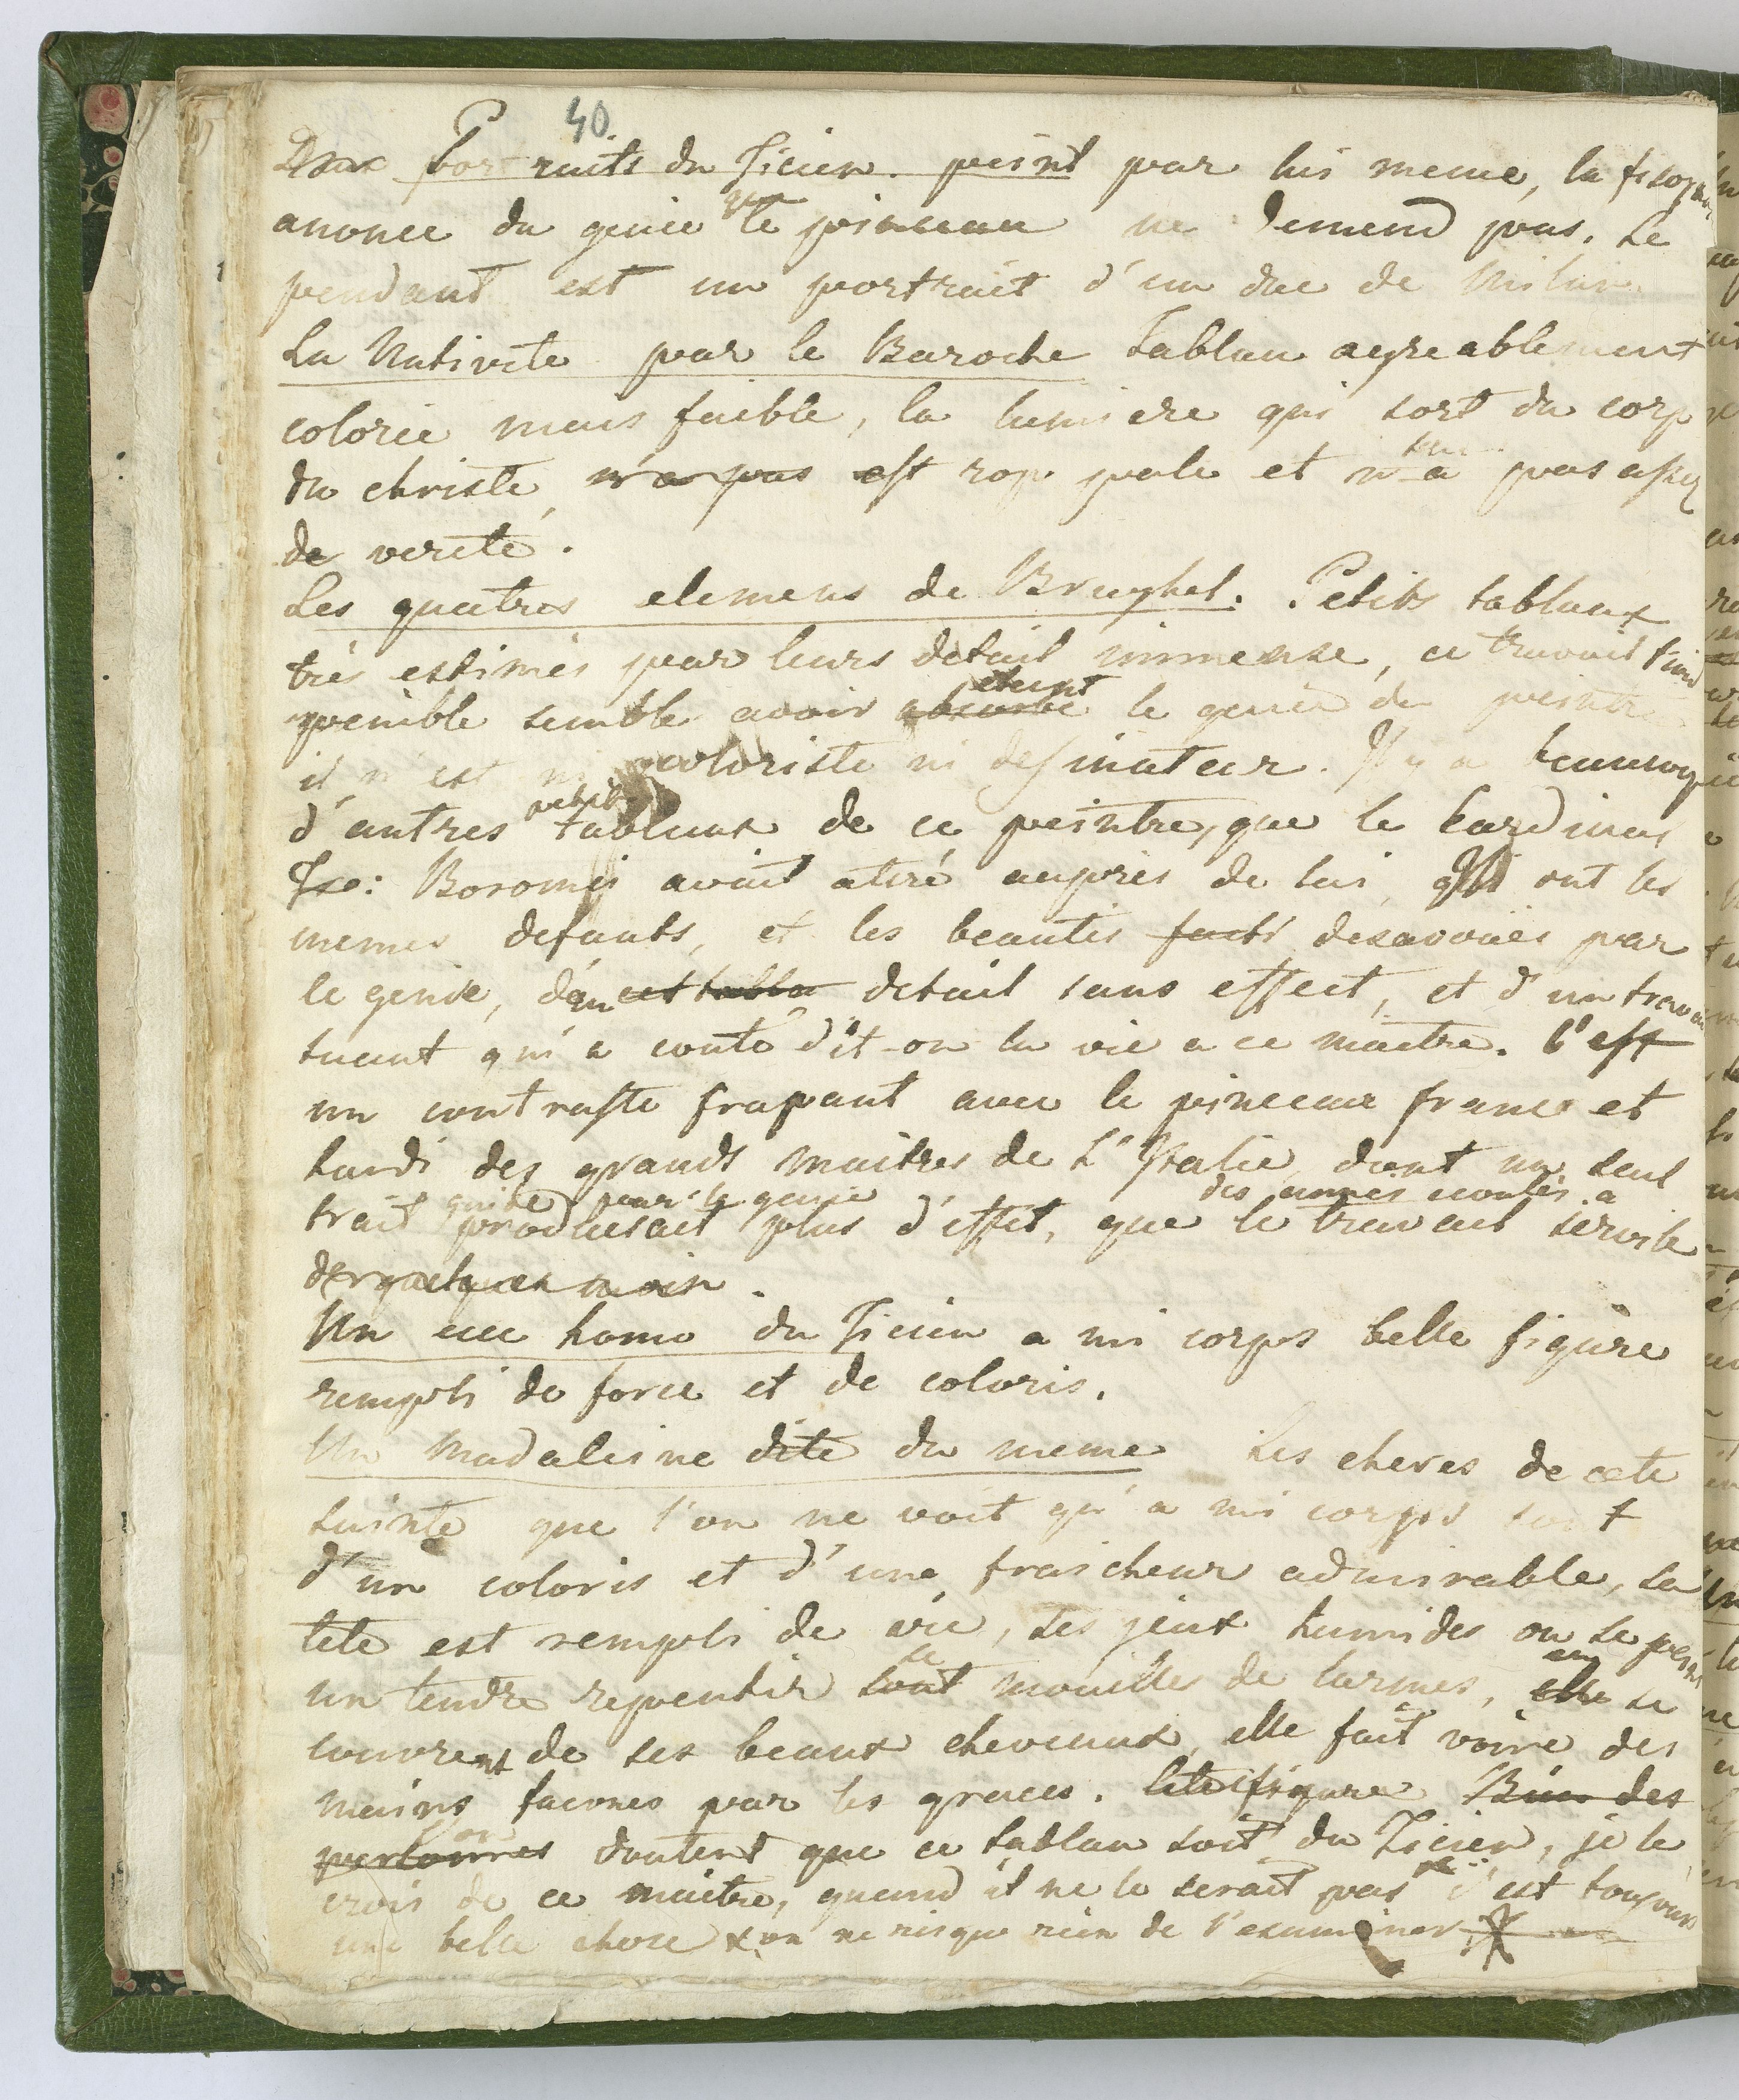 40
Deux Portraits du Ticien. peint par lui meme, la fisogno
anonce du genie que le pinceau ne demend pas. Le
pendant est un portrait d'un duc de Milan.
La Nativite par le Baroche Tablau agreablement
colorié mais faible, la lumiere qui sort du corp
du christe, n'a pas est trop pale et n'a pas assez
de verité.
Les quatres elemens de Brughel. Petits tablaux
très estimés par leurs detail immense, ce travail
penible semble avoir absorbé eteint le genie du peintre
il n'est ni coloriste ni dessinateur. Il y a beaucoup
d'autres petits tablaux de ce peintre, que le Cardinal
Fre: Boromei avait atiré auprès de lui, Ils ont les
memes defauts, et les beautés faits desavoués par
le genie, d'un cet tabla detail sans effect, et d'un travail
tuant qui a couté dit-on la vie a ce maitre. C'est
un contraste frapant avec le pinceau franc et
hardi des grands maitres de L'Italie, dont un seul
trait guidé par le genie produisait plus d'effet, que le travail servile des années
de quelques mois.
Un ecce homo du Ticien a mi corps belle figure
rempli de force et de coloris.
Un Madaleine dite du meme Les cheres de cete
sainte que l'on ne voit qu'a mi corps sont
d'un coloris et d'une fraicheur admirable, sa
tete est rempli de vie, ses yeux humides ou se peint
un tendre repentir sont mouillés de larmes, elle en se
couvrent de ses beaux cheveux, elle fait voire des
mains faconés par les graces. cete figure Bien des
personnes l'on doutent que ce tablau soit du Ticien, je le
crois de ce maitre, quand il ne le serait pas c'est toujours
une belle chose & on ne risque rien de l'examiner